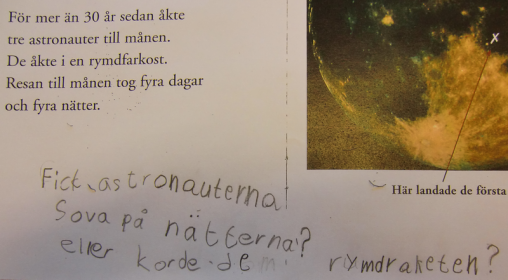 För mer än 30 år sedan åkte
tre astronauter till månen.
De åkte i en rymdfarkost.
Resan till månen tog fyra dagar
och fyra nätter.
Här landade de första
Fick astronauterna
Sova på nätterna?
eller korde de rymdraketen?